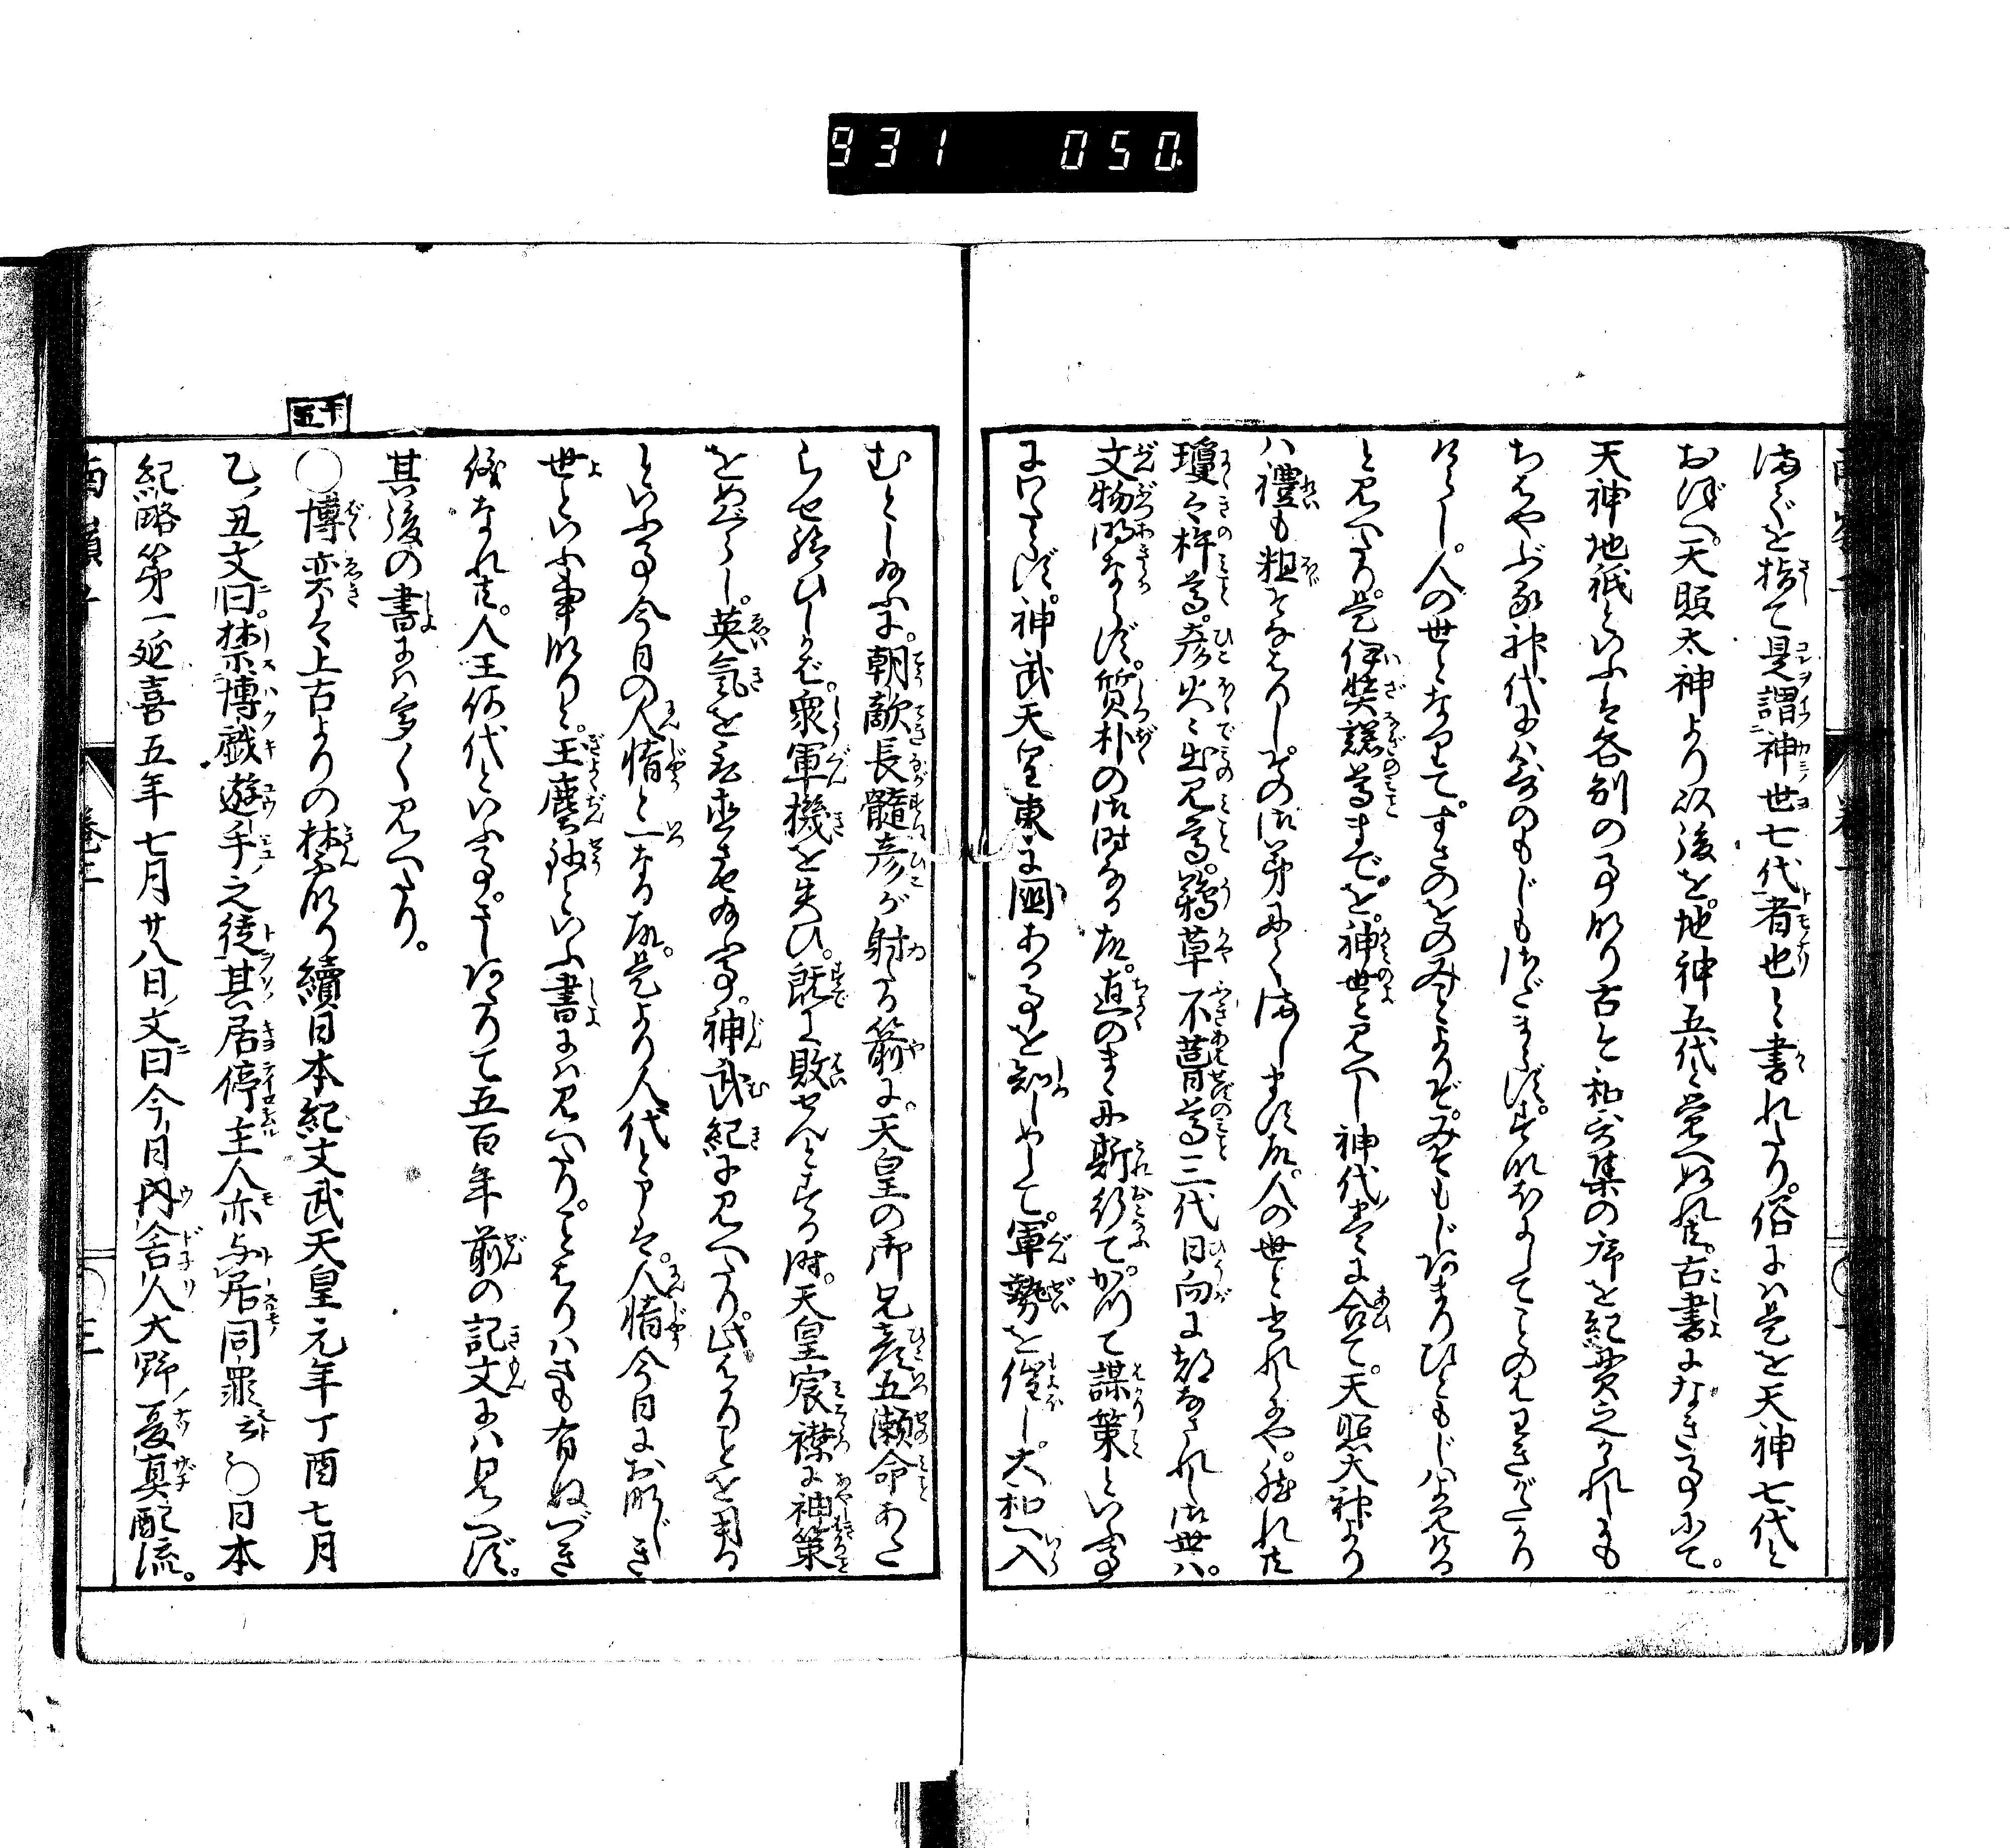 931 050
まで を指て是謂神世七代者也と書れたり。俗には是を天神七代と
おぼへ。天照太神より以後を。地神五代と覚へぬれ共。古書になき事にて。
天神地祇といふは各別の事なり古今和歌集の序を紀貫之かれしにも
ちはやぶる神代には哥のもじもさだまらず。すなほにしてことのはわきがたかり
けらし。人の世となりて。すさのをのみことよりぞ。みそもじあまりひともじはよみける
と見へたり。是伊弉諾尊までを。神世と見へし神代巻に合て。天照大神より
ハ禮も粗そなはりし
瓊々杵尊。彦火々出見尊。鸕草不葺尊三代日向に都なされし御世ハ。
文物明ならず。質朴の御時なる故。直のまゝに斯行て。かつて謀策といふ事
にいたらず。神武天皇東に國ある事を知しめして。軍勢を催し。大和へ入
むとし給ふに。朝敵長髄彦が射る箭に。天皇の御兄彦五瀬命あたら
らせ給ひしかど。衆軍機を失ひ。既に敗せんとする時。天皇宸襟に神策
をめぐらし。英気を 給ふ事。神武紀に見へたり。此はかりことを用る
といふ事今日の人情と一なる故。是より人代と申は。人情今日にお
世といふ事なりと。王塵抄といふ書には見へたり。ことはりハさも有ぬべき
儀なれ共。人王何代といふ事。さしあたりて五百年前の記文には見へず。
其後の書には多く見へたり。
千五
〇博奕は上古よりの禁なり續日本紀文武天皇元年丁酉七月
乙丑文曰。禁博戯遊手之徒其居停主人亦与居同罪云々〇日本
紀略第一延喜五年七月廿八日文曰今日内舎人大野夏真配流。